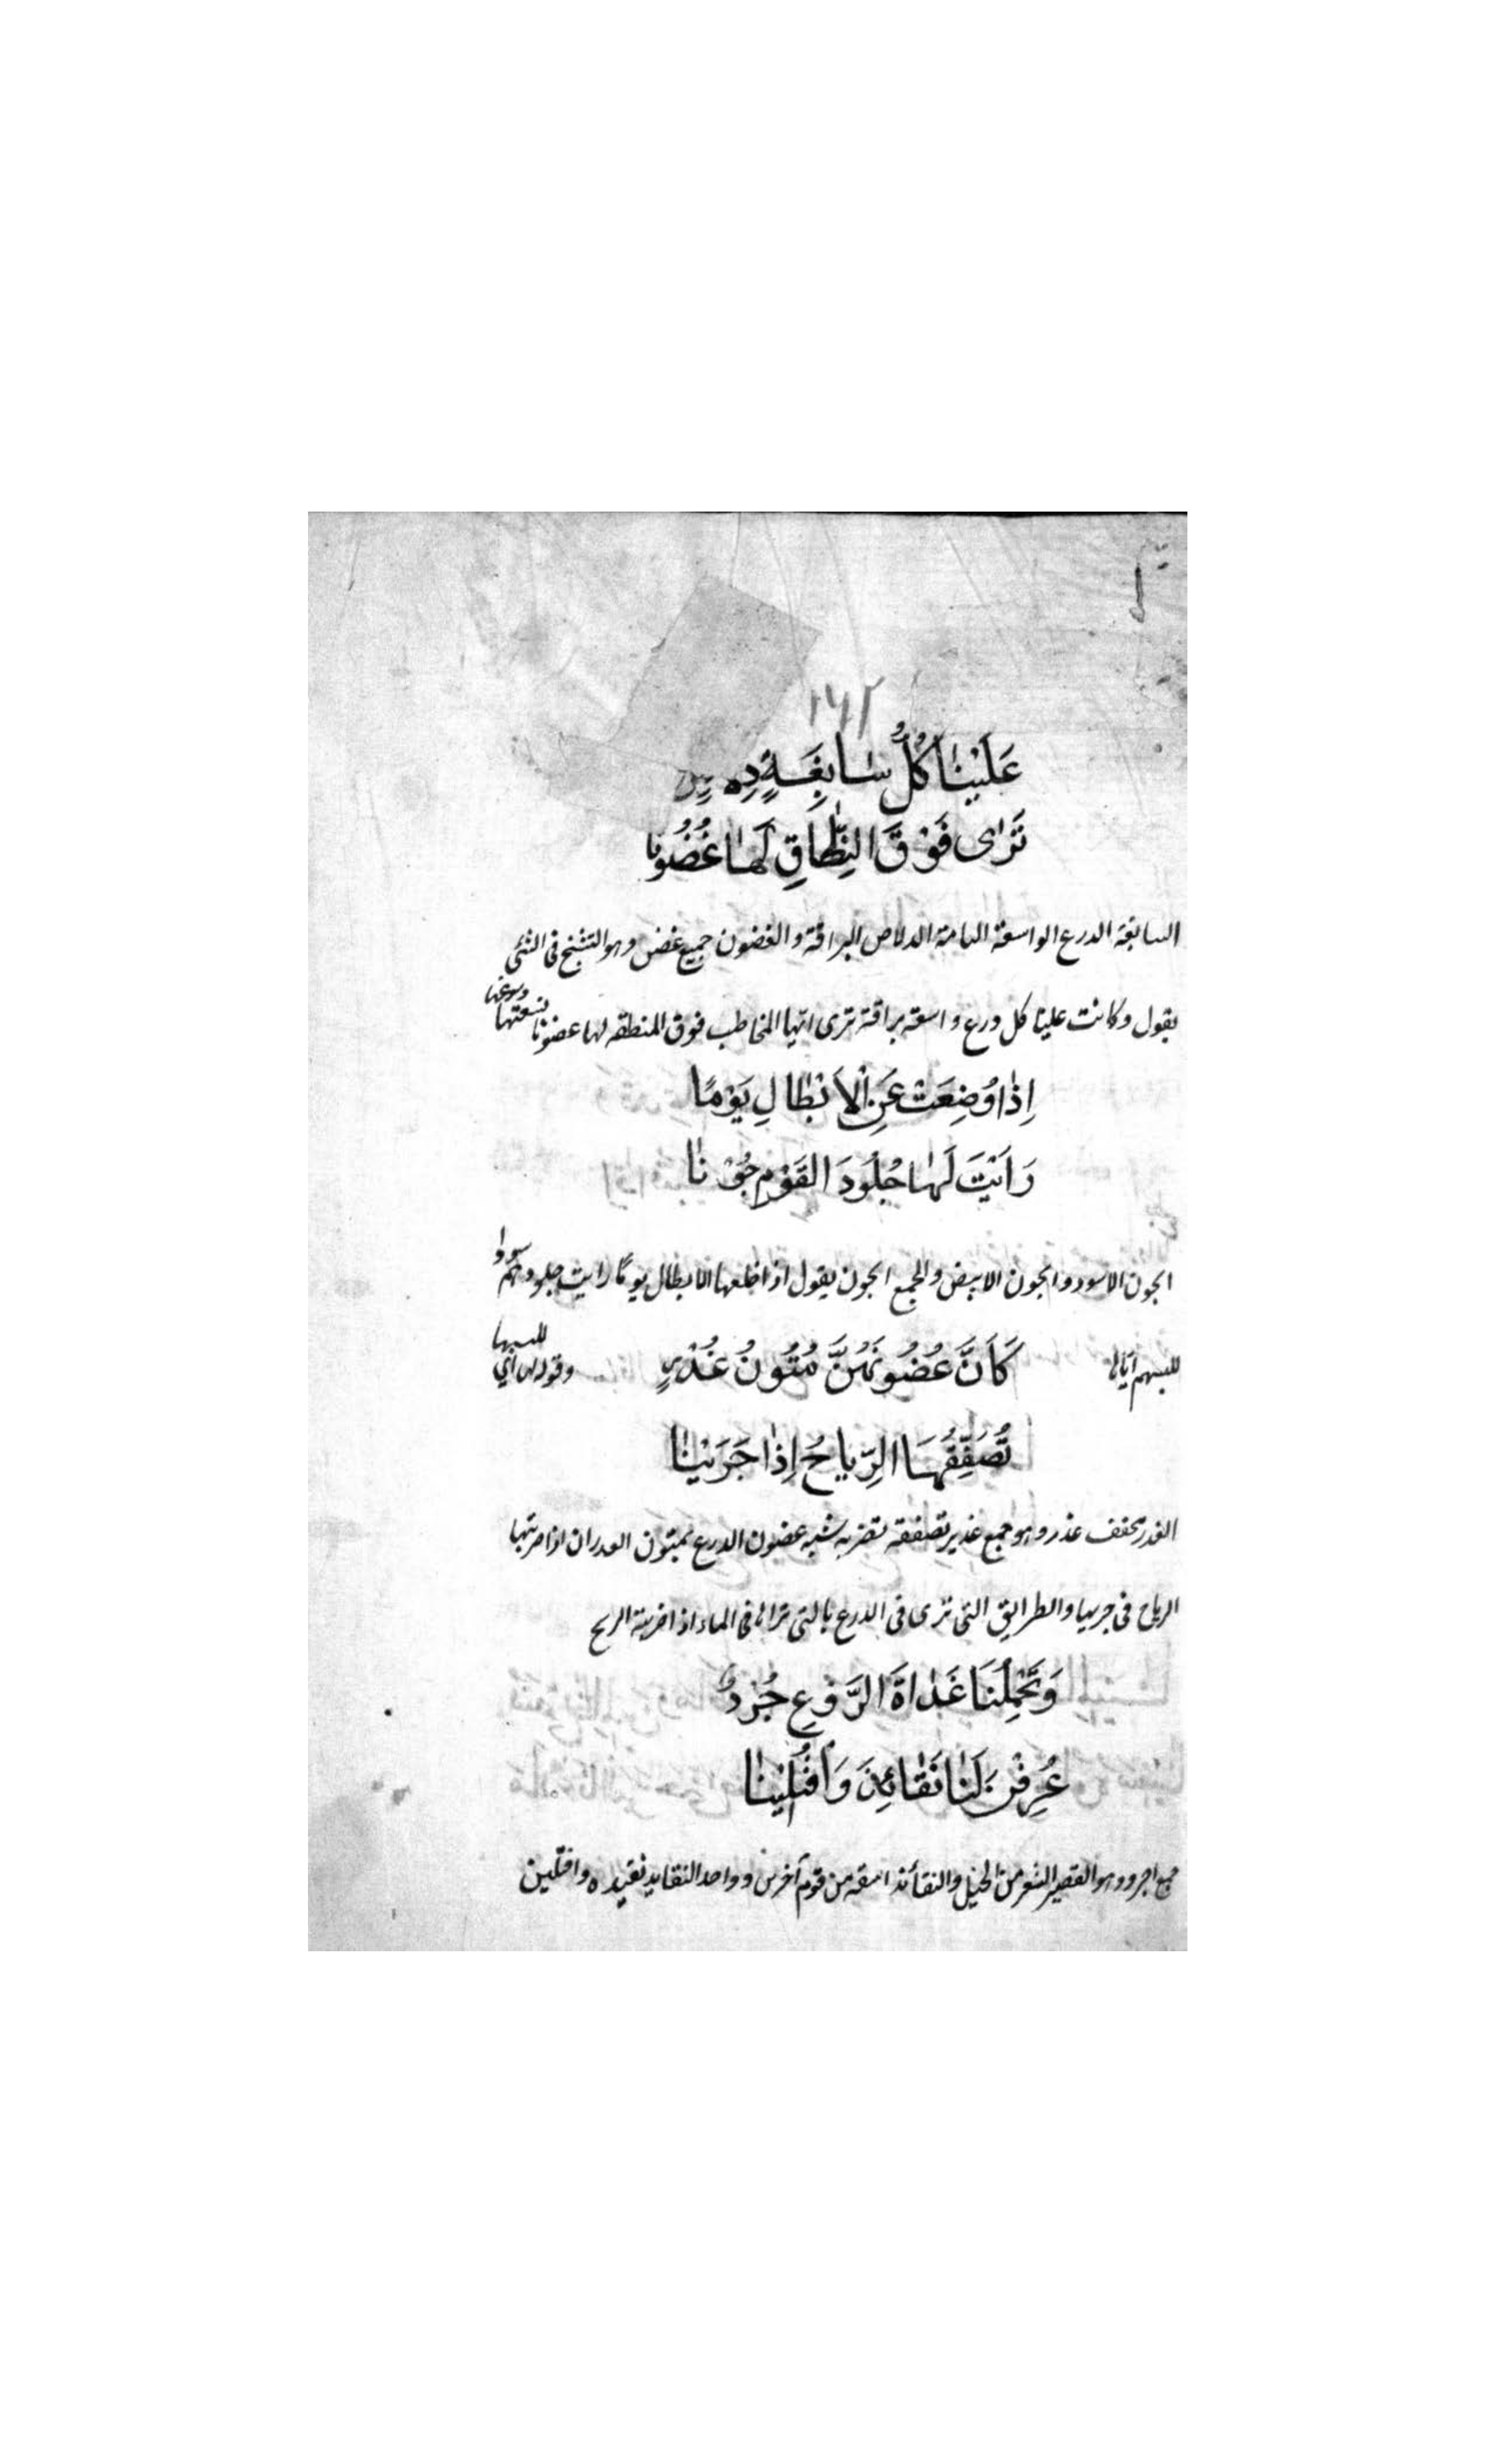 ١٦٢
عَلَيْنَا كُلُّ سَابِغَةٍ دِ
تَرَى فَوْقَ النِّطَاقِ لَهَا غُضُونَا
السابغة الدرع الواسعة التامة الدلاص البراقة والغضون جميع غضن وهو التشنج فى الشئ
يقول وكانت علينا كل درع واسعة براقة ترى ايها المخاطب فوق المنطقه لها غضونا لسعتها وسبوغها
اِذَا وُضِعَتْ عَنِ الْاَبْطَالِ يَوْمًا
رَاَيْتَ لَهَا جُلُودَ القَوْمِ جُوْنَا
الجون الاسود والجون الابيض والجمع الجون يقول اذا خلعها الابطال يومًا رايت جلودهم سودا
للبسهم اياها وقوله لها اي للبسها
كَاَنَّ غُضُونَهُنَّ مُتُونُ غُدْرٍ
تُصَفِّقُهَا الرِّيَاحُ اِذَا جَرَيْنَا
الغدر مخفف غدر وهو جمع غدير تصفقه تضربه شبه غضون الدرع بمتون الغدران اذا ضربتها
الرياح فى جريها والطرايق التى ترى فى الدرع بالتى تراها فى الماء اذا ضربته الريح
وَتَحْمِلُنَا غَدَاةَ الرَّوْعِ جُرْدٌ
عُرِفْنَ لَنَا نَقَائِذَ وَافْتُلِيْنَا
جمع اجرد وهو القصير الشعر من الخيل والنقائذ من قوم آخرين وواحد النقايذ نقيذه وافتلين